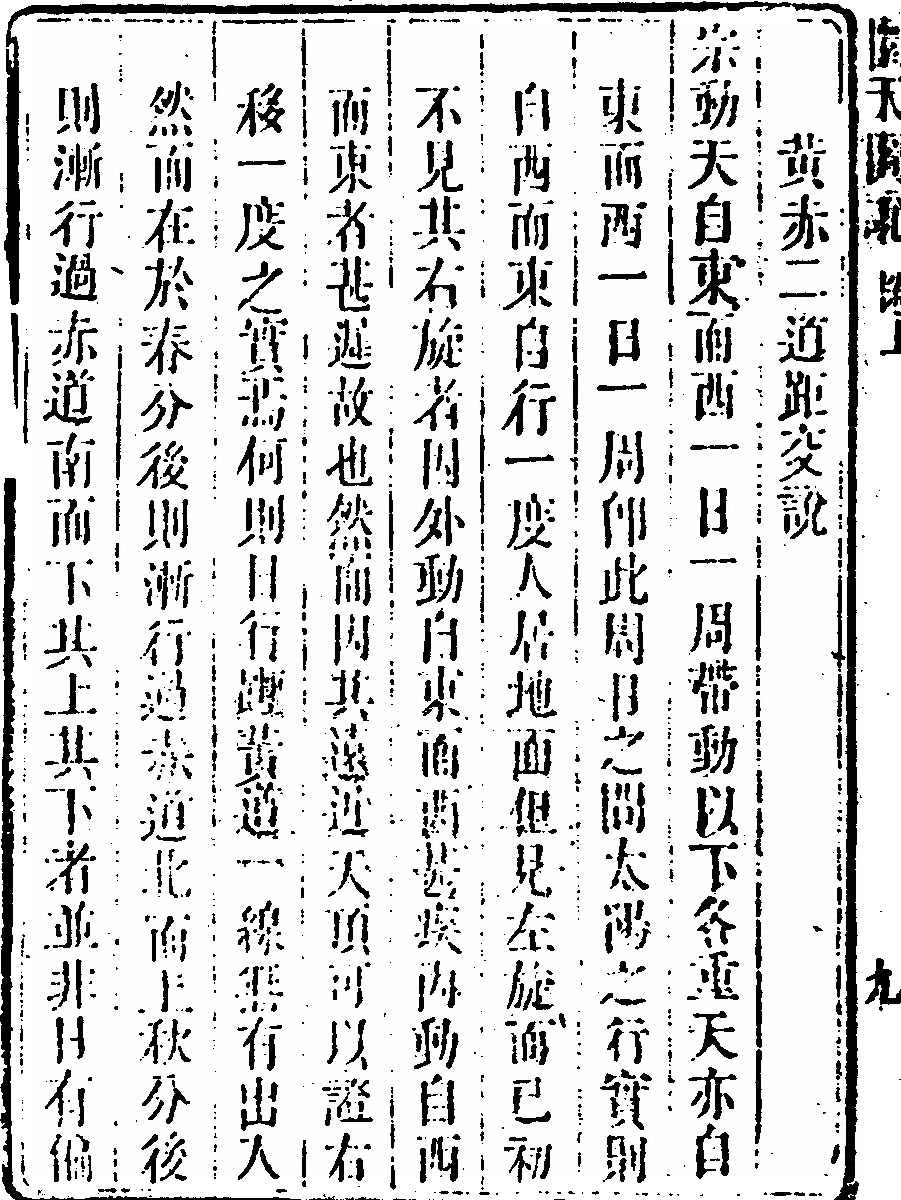 黃赤二道距交說
宗動天自東而西一日一周帶動以下各重天亦自
東而西一日一周卽此周日之間太陽之行實則
自西而東自行一度人居地面但見左旋而已初
不見其右旋者因外動自東而西甚疾內動自西
而東者甚遲故也然而因其遠近天頂可以證右
移一度之實焉何則日行躔黃道一線無有出入
然而在於春分後則漸行過赤道北而上秋分後
則漸行過赤道南而下其上其下者並非日有偏
九